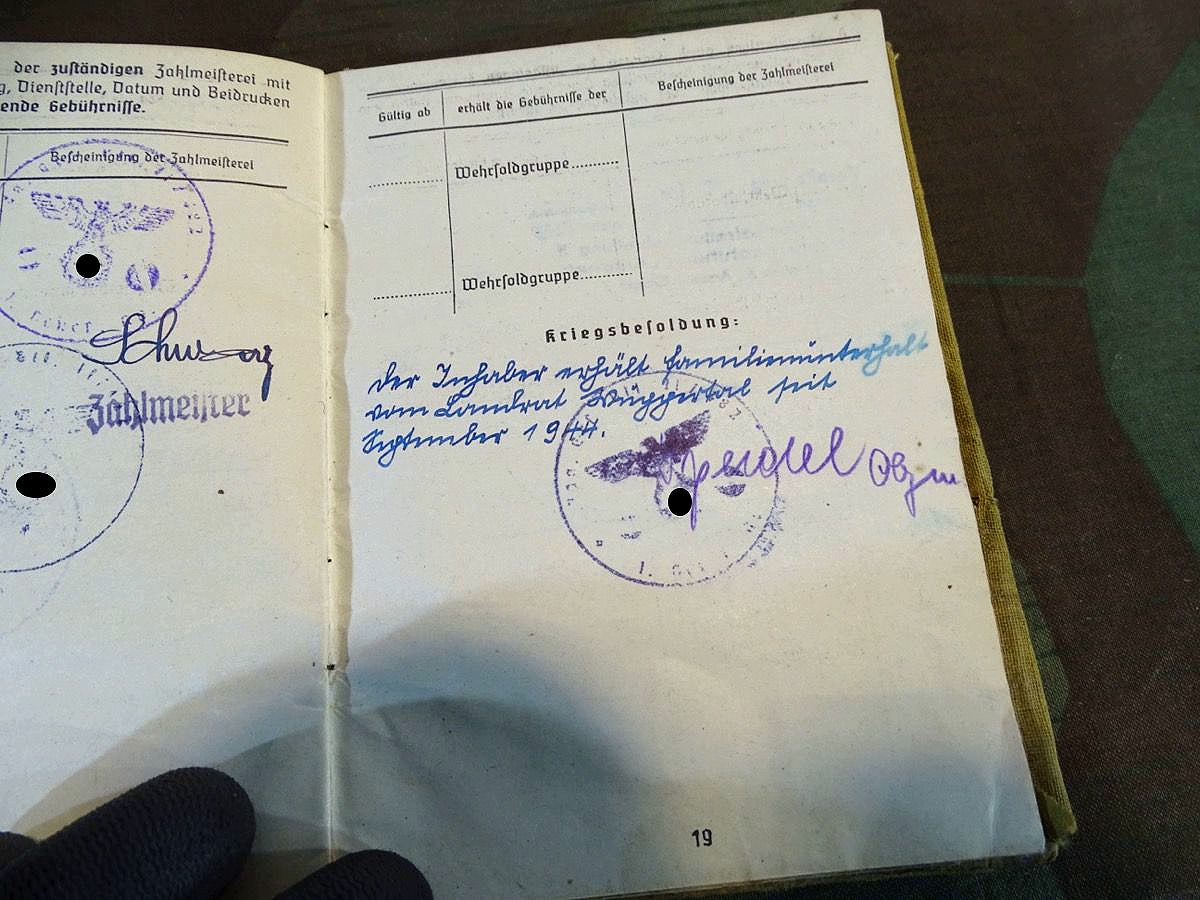 der zuständigen Zahlmeisterei mit
Dienststelle, Datum und Beidrucken
ende Gebührnisse.
Bescheinigung der Zahlmeisterei
Zahlmeister
Gültig ab
erhält die Gebührnisse der
Bescheinigung der Zahlmeisterei
Wehrsoldgruppe
Wehrsoldgruppe
Kriegsbesoldung:
Der Inhaber erhält Familienunterhalt
vom Landrat Wuppertal seit
September 1944.
19